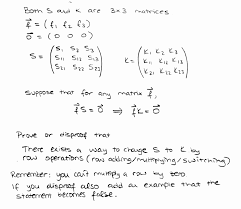 Both S and K are 3×3 matrices
f⃗ = (f₁ f₂ f₃)
0⃗ = (0 0 0)
S = (S₁ S₂ S₃
S₁₁ S₁₂ S₁₃
S₂₁ S₂₂ S₂₃)
K = (K₁ K₂ K₃
K₁₁ K₁₂ K₁₃
K₂₁ K₂₂ K₂₃)
Suppose that for any matrix f⃗,
f⃗S = 0⃗ ⇒ f⃗K = 0⃗
Prove or disproof that
There exists a way to change S to K by
row operations (row adding/multiplying/switching)
Remember: you can't multiply a row by zero.
If you disproof also add an example that the
statement becomes false.